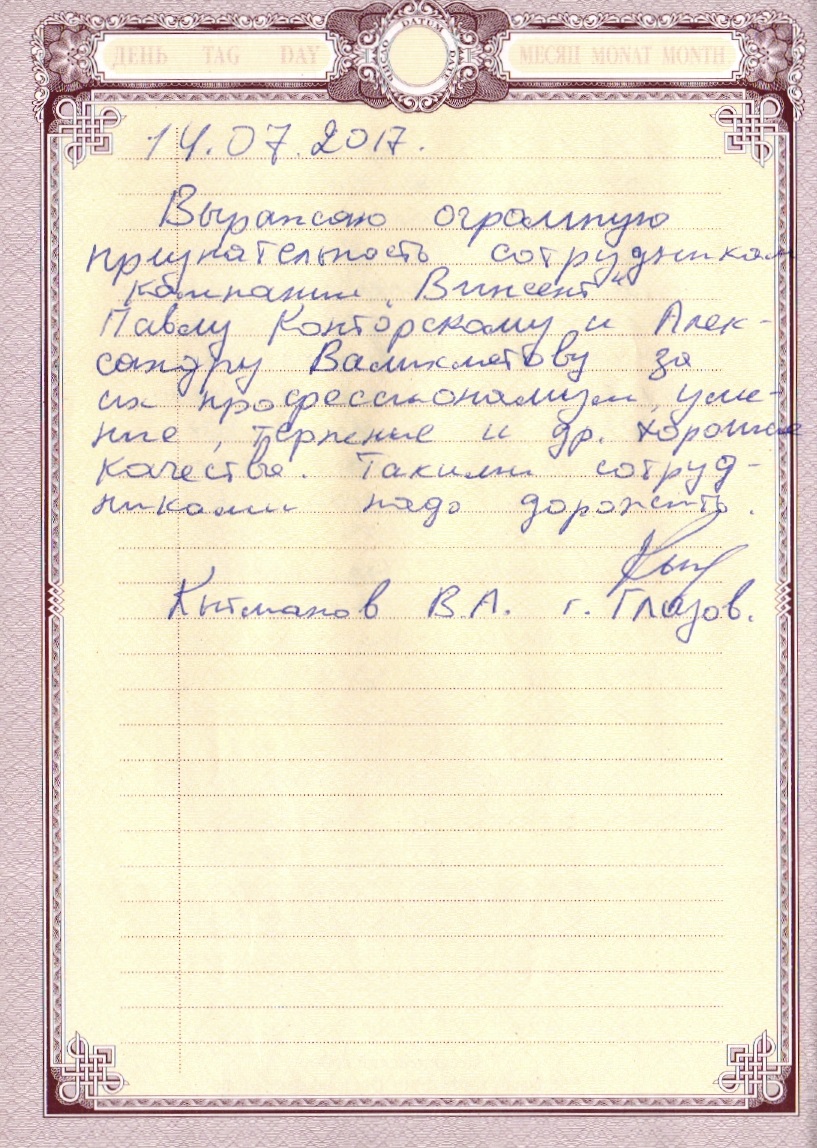 ДЕНЬ TAG DAY
DATUM
МЕСЯЦ MONAT MONTH
14.07.2017.
Выражаю огромную
признательность сотрудникам
компании „Винсент“
Павлу Конторскому и Алек-
сандру Валиахметову за
их профессионализм, уме-
ние, терпение и др. хорошие
качества. Такими сотруд-
никами надо дорожить.
Кытманов В.А. г. Глазов.